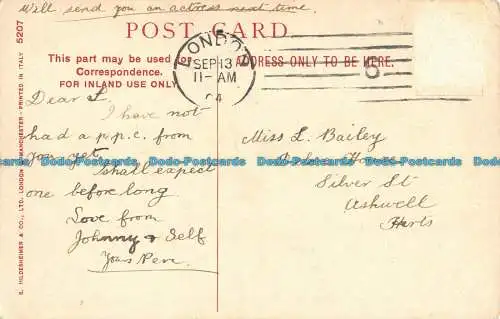 Will send you an actress next time.
POST CARD
This part may be used for
Correspondence.
FOR INLAND USE ONLY.
ADDRESS ONLY TO BE HERE.
LONDON
SEP 13
11-AM
04
6
Dear L.
I have not
had a p.p.c. from
you yet
shall expect
one before long
Love from
Johnny & Self
Yours
Miss L. Bailey
Silver St
Ashwell
Herts
5207
PRINTED IN ITALY
E. HILDESHEIMER & CO., LTD. LONDON & MANCHESTER -
Dobs-Postcards Dobs-Postcards Dobs-Postcards